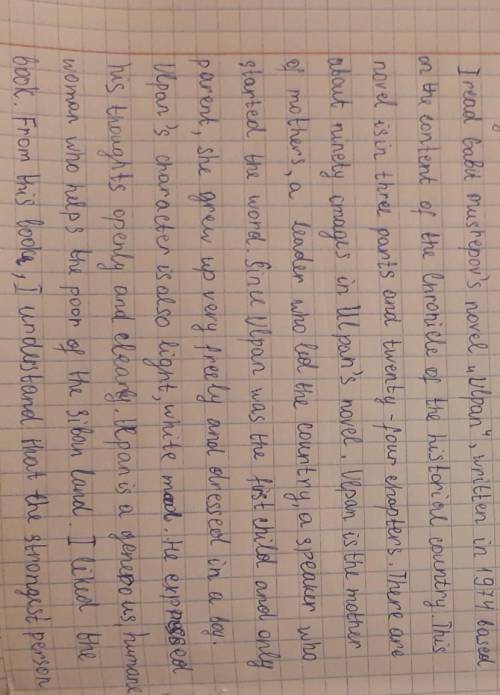 I read Gabit Musrepov's novel „Ulpan", written in 1974 based
on the content of the Chronicle of the historical country. This
novel is in three parts and twenty-four chapters. There are
about ninety images in Ulpan's novel. Ulpan is the mother
of mothers, a leader who led the country, a speaker who
started the word. Since Ulpan was the first child and only
parent, she grew up very freely and dressed in a boy.
Ulpan's character is also light, white mood. He expressed
his thoughts openly and clearly. Ulpan is a generous, humane
woman who helps the poor of the siban land. I liked the
book. From this book, I understand that the strongest person